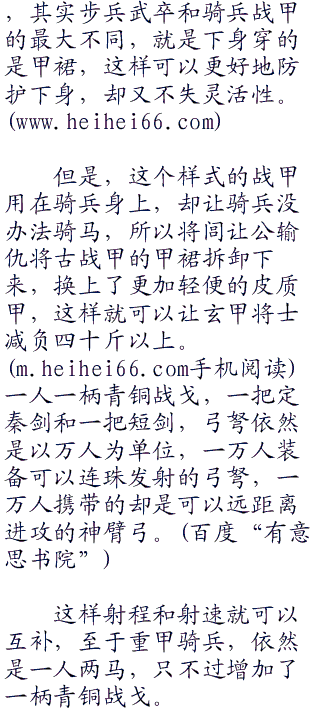 ，其实步兵武卒和骑兵战甲
的最大不同，就是下身穿的
是甲裙，这样可以更好地防
护下身，却又不失灵活性。
(www.heihei66.com)
但是，这个样式的战甲
用在骑兵身上，却让骑兵没
办法骑马，所以将闾让公输
仇将古战甲的甲裙拆卸下
来，换上了更加轻便的皮质
甲，这样就可以让玄甲将士
减负四十斤以上。
(m.heihei66.com手机阅读)
一人一柄青铜战戈，一把定
秦剑和一把短剑，弓弩依然
是以万人为单位，一万人装
备可以连珠发射的弓弩，一
万人携带的却是可以远距离
进攻的神臂弓。(百度“有意
思书院”)
这样射程和射速就可以
互补，至于重甲骑兵，依然
是一人两马，只不过增加了
一柄青铜战戈。